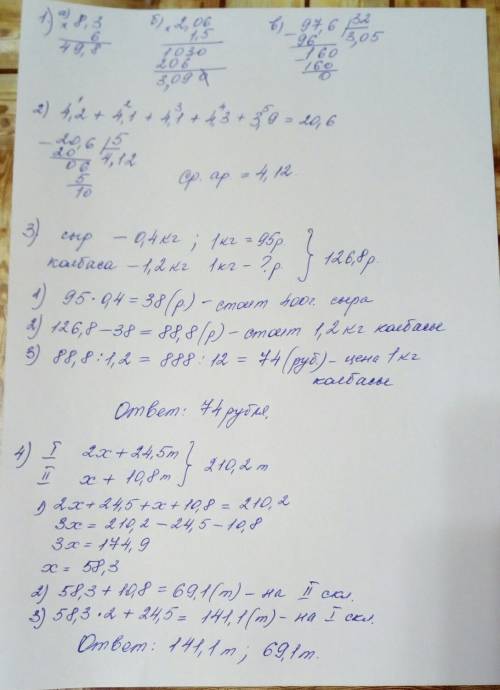 1) а) × 8,3 б) × 2,06 в) − 97,6 | 32
6 1,5 96 3,05
49,8 1030 160
206 160
3,090 0
2) 4,2 + 4,1 + 4,1 + 4,3 + 3,9 = 20,6
1 2 3 4 5
− 20,6 | 5
20 4,12
06
5
10
ср. ар = 4,12.
3) сыр – 0,4 кг ; 1 кг = 95 р.
колбаса – 1,2 кг 1 кг – ? р. } 126,8 р.
1) 95 · 0,4 = 38 (р) – стоит 400г. сыра
2) 126,8 – 38 = 88,8 (р) – стоит 1,2 кг колбасы
3) 88,8 : 1,2 = 888 : 12 = 74 (руб) – цена 1 кг
колбасы
Ответ: 74 рубля.
4) I 2x + 24,5 т
II x + 10,8 т } 210,2 т
1) 2x + 24,5 + x + 10,8 = 210,2
3x = 210,2 – 24,5 – 10,8
3x = 174,9
x = 58,3
2) 58,3 + 10,8 = 69,1 (т) – на II скл.
3) 58,3 · 2 + 24,5 = 141,1 (т) – на I скл.
Ответ: 141,1 т ; 69,1 т.